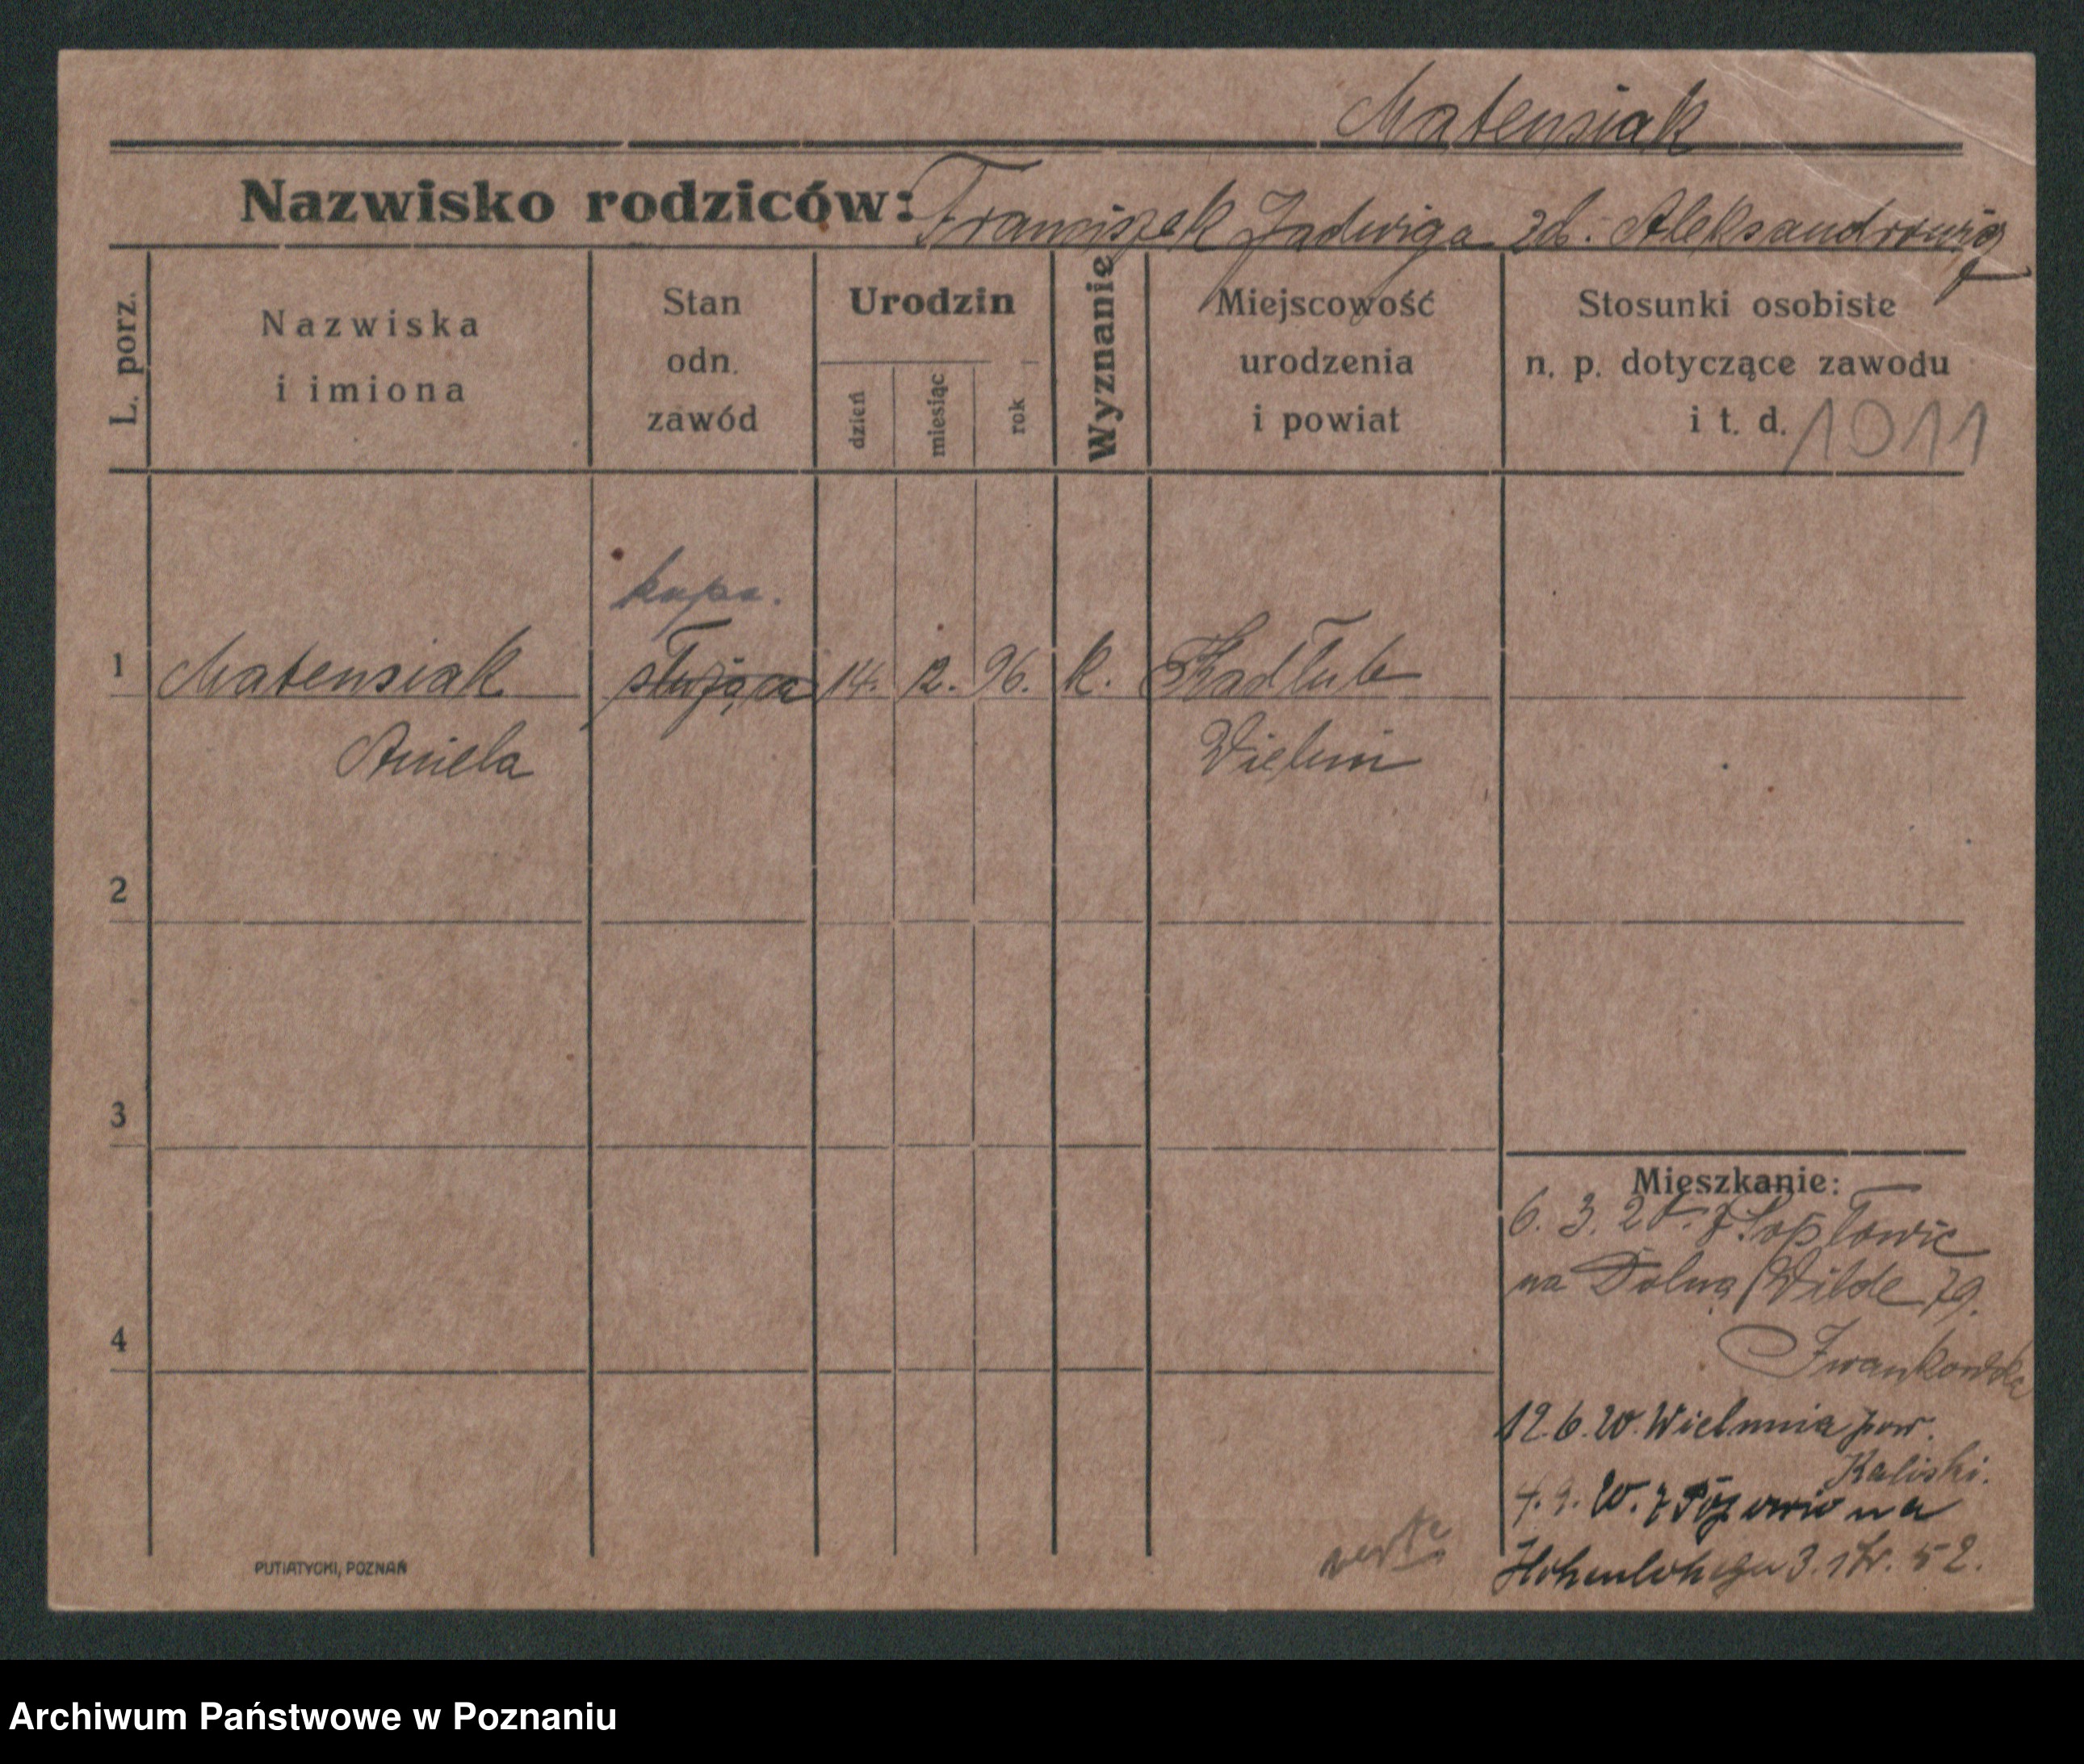 Matensiak
Nazwisko rodziców: Franciszek Jadwiga zd. Aleksandrowicz
L. porz.
Nazwiska
i imiona
Stan
odn.
zawód
Urodzin
dzień
miesiąc
rok
Wyznanie
Miejscowość
urodzenia
i powiat
Stosunki osobiste
n. p. dotyczące zawodu
i t. d.
1011
1 Matensiak służąca 14. 12. 96. k. Kadłub
Aniela Wieluń
2
3
4
Mieszkanie:
6. 3. 20. z
na Dolną Wildę 79.
Iwankowska
12. 6. 20. Wielunia pow.
Kaliski.
4. 9. 20. z na
3. 52.
verte
PUTIATYCKI, POZNAŃ
Archiwum Państwowe w Poznaniu